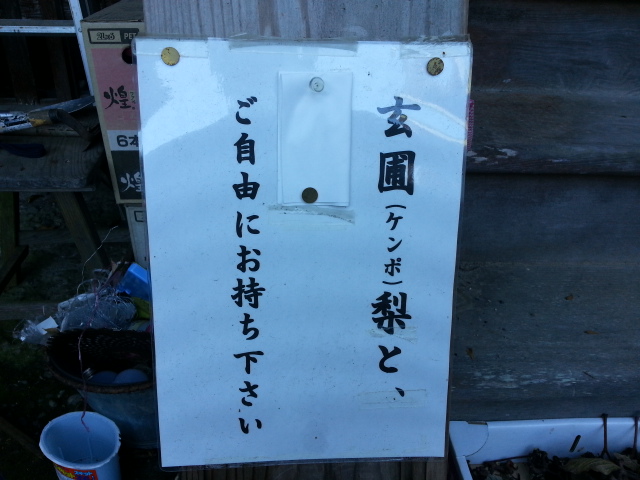 玄圃(ケンポ)梨と、
ご自由にお持ち下さい
煌
6本
煌